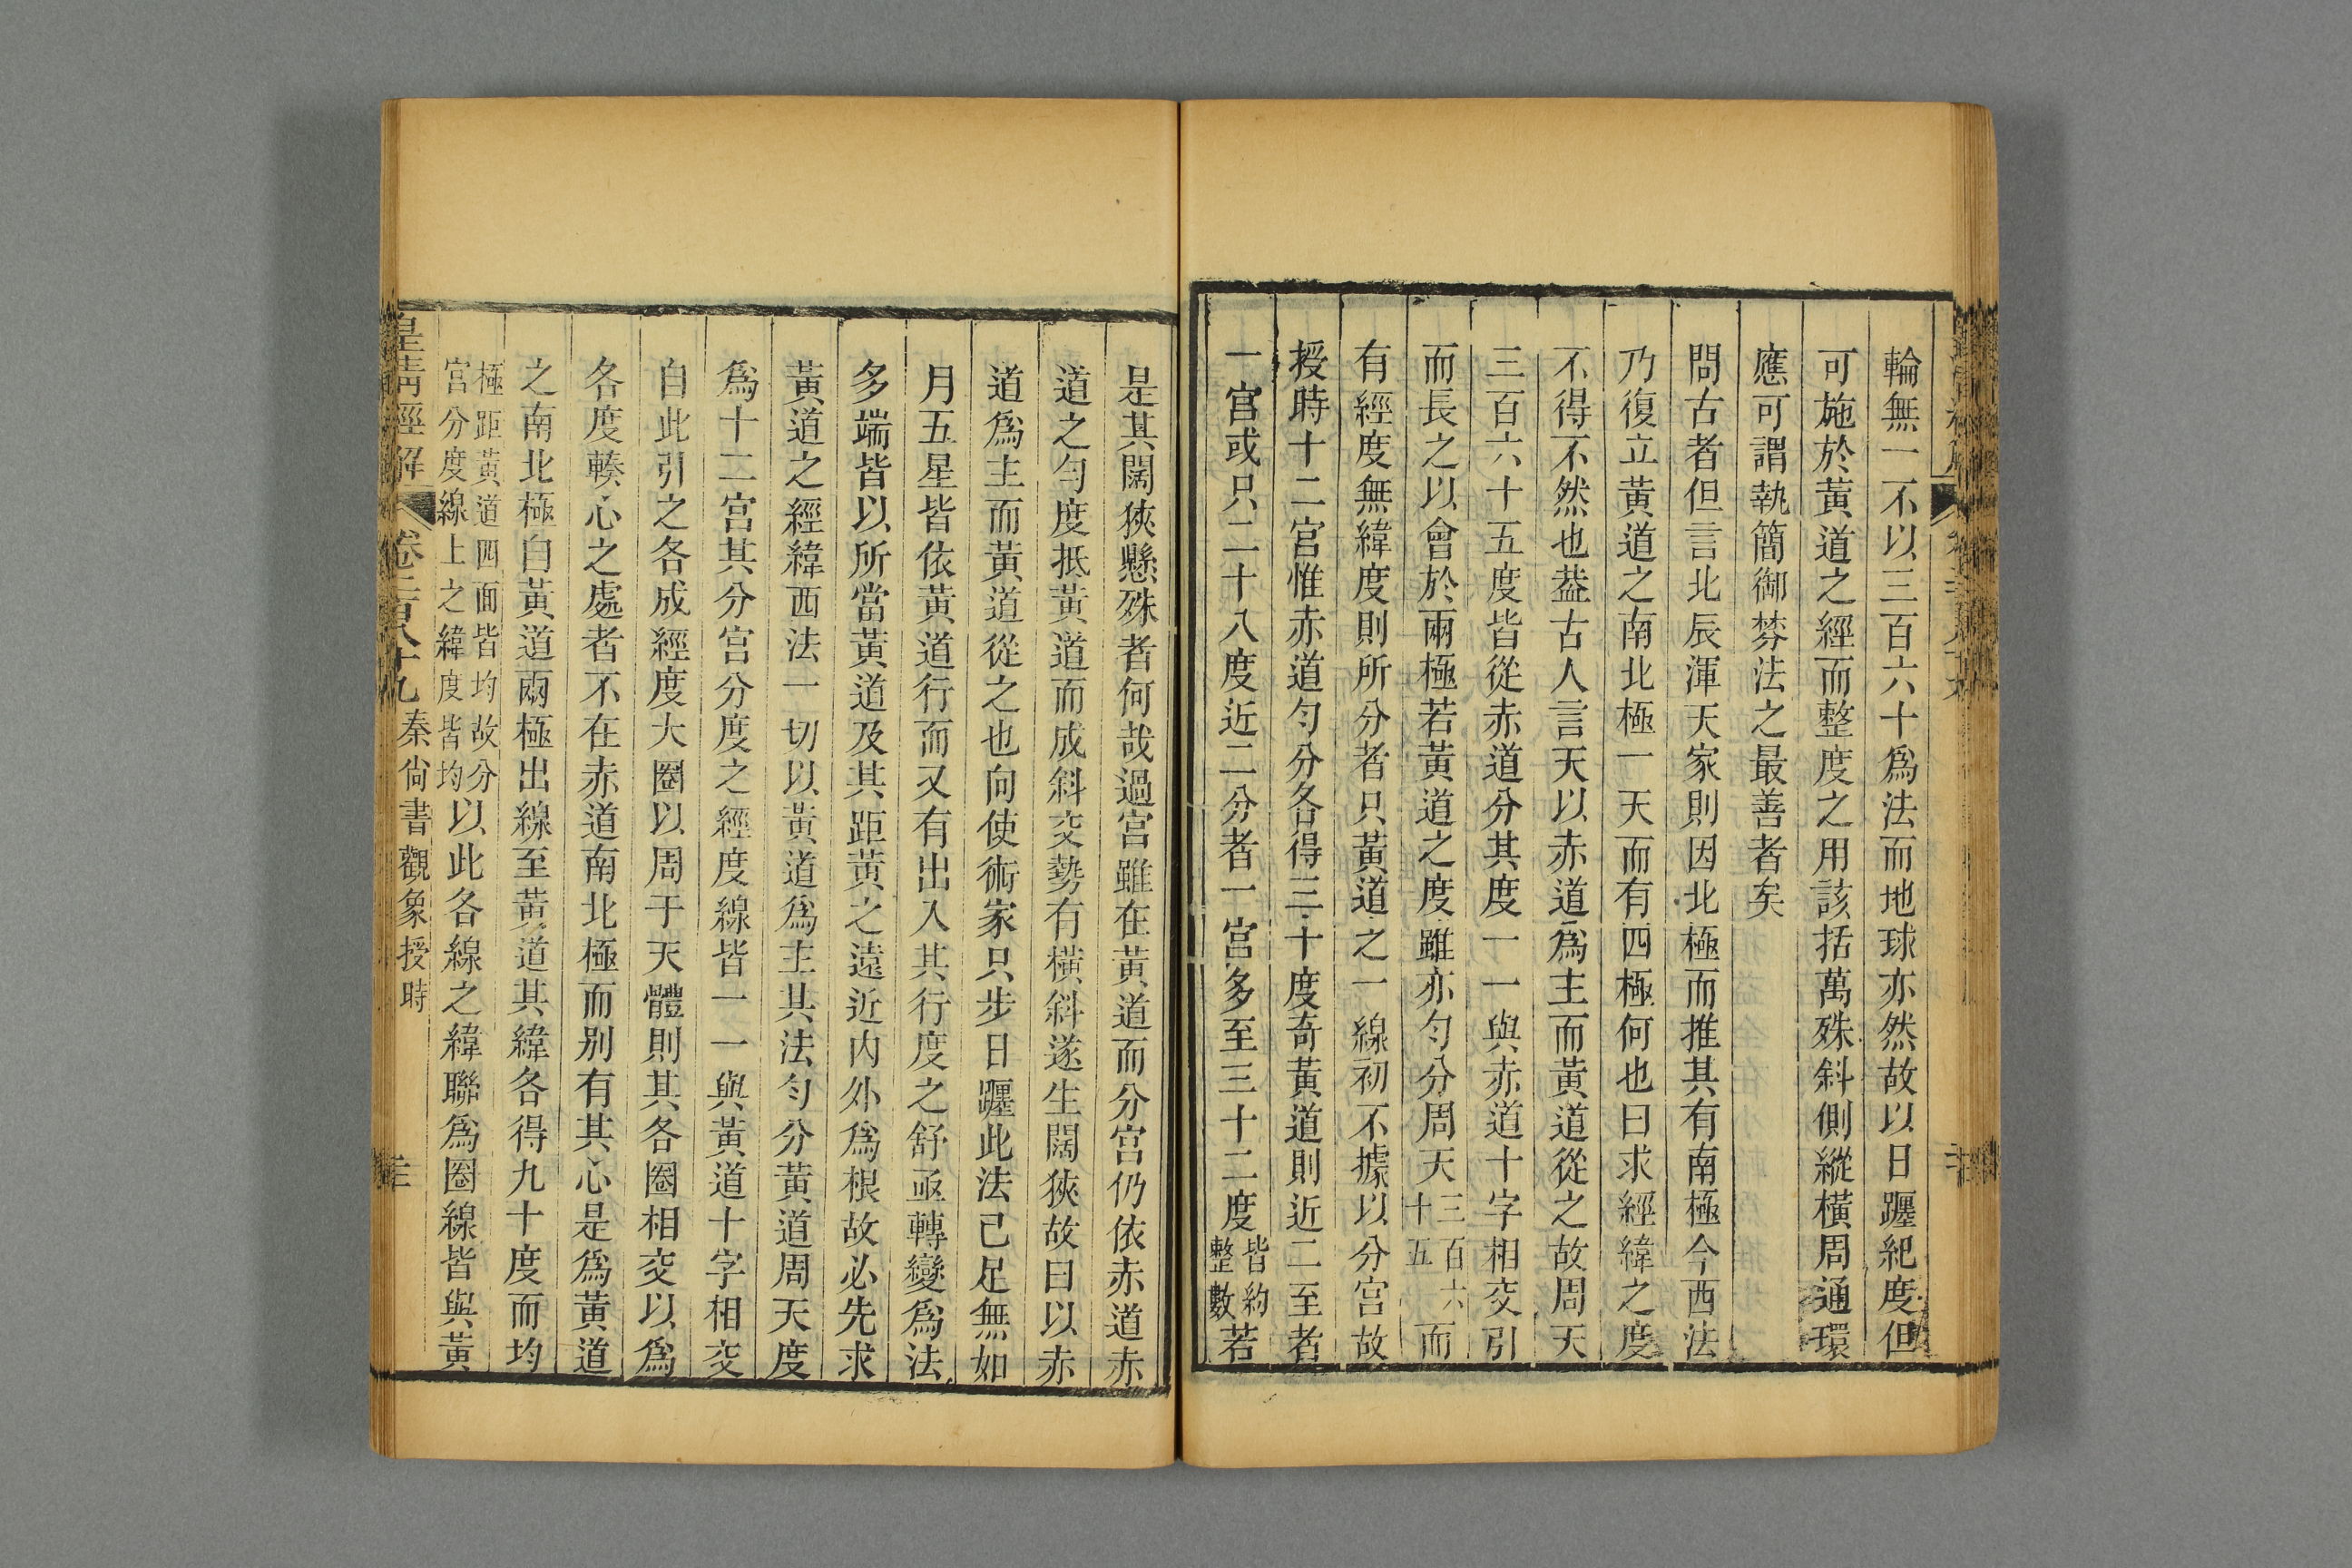 輪無一不以三百六十爲法而地球亦然故以日躔紀度但
可施於黃道之經而整度之用該括萬殊斜側縱橫周通環
應可謂執簡御棼法之最善者矣
問古者但言北辰渾天家則因北極而推其有南極今西法
乃復立黃道之南北極一天而有四極何也曰求經緯之度
不得不然也葢古人言天以赤道爲主而黃道從之故周天
三百六十五度皆從赤道分其度一一與赤道十字相交引
而長之以會於兩極若黃道之度雖亦勻分周天三百六十五而
有經度無緯度則所分者只黃道之一線初不據以分宮故
授時十二宮惟赤道勻分各得三十度奇黃道則近二至者
一宮或只二十八度近二分者一宮多至三十二度皆約整數若
是其闊狹懸殊者何哉過宮雖在黃道而分宮仍依赤道赤
道之勻度抵黃道而成斜交勢有橫斜遂生闊狹故曰以赤
道爲主而黃道從之也向使術家只步日躔此法已足無如
月五星皆依黃道行而又有出入其行度之舒亟轉變爲法
多端皆以所當黃道及其距黃之遠近內外爲根故必先求
黃道之經緯西法一切以黃道爲主其法勻分黃道周天度
爲十二宮其分宮分度之經度線皆一一與黃道十字相交
自此引之各成經度大圈以周于天體則其各圈相交以爲
各度輳心之處者不在赤道南北極而别有其心是爲黃道
之南北極自黃道兩極出線至黃道其緯各得九十度而均
極距黃道四面皆均故分宮分度線上之緯度皆均以此各線之緯聯爲圈線皆與黃
皇淸經解 卷二百八十九 秦尙書觀象授時